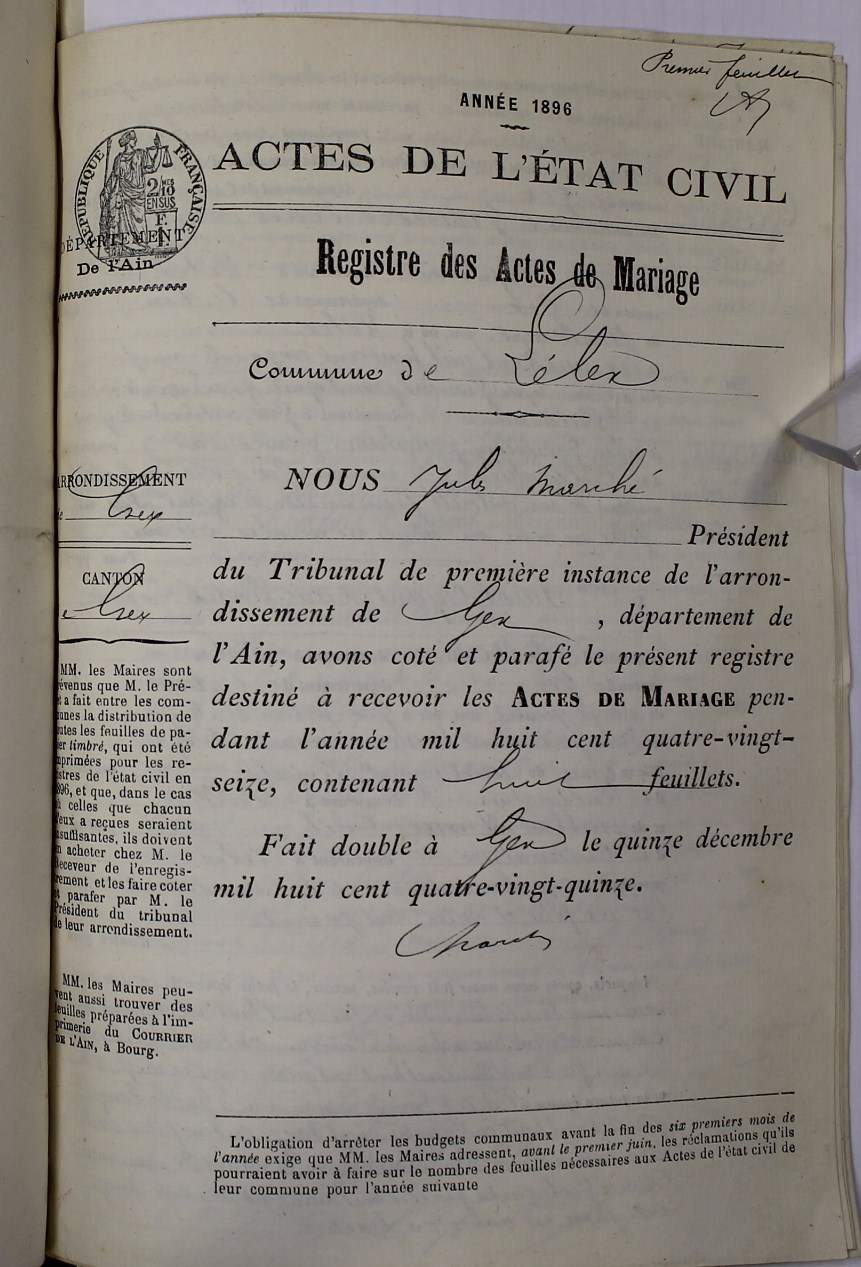 Premier feuillet
ANNÉE 1896
ACTES DE L'ÉTAT CIVIL
RÉPUBLIQUE FRANÇAISE
2/10 MES
EN SUS
F
DÉPARTEMENT
De l'Ain
Registre des Actes de Mariage
Commune de Lélex
ARRONDISSEMENT
de Gex
CANTON
de Gex
MM. les Maires sont
prévenus que M. le Pré-
fet a fait entre les com-
munes la distribution de
toutes les feuilles de pa-
pier timbré, qui ont été
imprimées pour les re-
gistres de l'état civil en
1896, et que, dans le cas
où celles que chacun
d'eux a reçues seraient
insuffisantes, ils doivent
en acheter chez M. le
Receveur de l'enregis-
trement et les faire coter
et parafer par M. le
Président du tribunal
de leur arrondissement.
MM. les Maires peu-
vent aussi trouver des
feuilles préparées à l'im-
primerie du COURRIER
DE L'AIN, à Bourg.
NOUS Jules Marché
Président
du Tribunal de première instance de l'arron-
dissement de Gex, département de
l'Ain, avons coté et parafé le présent registre
destiné à recevoir les ACTES DE MARIAGE pen-
dant l'année mil huit cent quatre-vingt-
seize, contenant huit feuillets.
Fait double à Gex le quinze décembre
mil huit cent quatre-vingt-quinze.
Marché
L'obligation d'arrêter les budgets communaux avant la fin des six premiers mois de
l'année exige que MM. les Maires adressent, avant le premier juin, les réclamations qu'ils
pourraient avoir à faire sur le nombre des feuilles nécessaires aux Actes de l'état civil de
leur commune pour l'année suivante